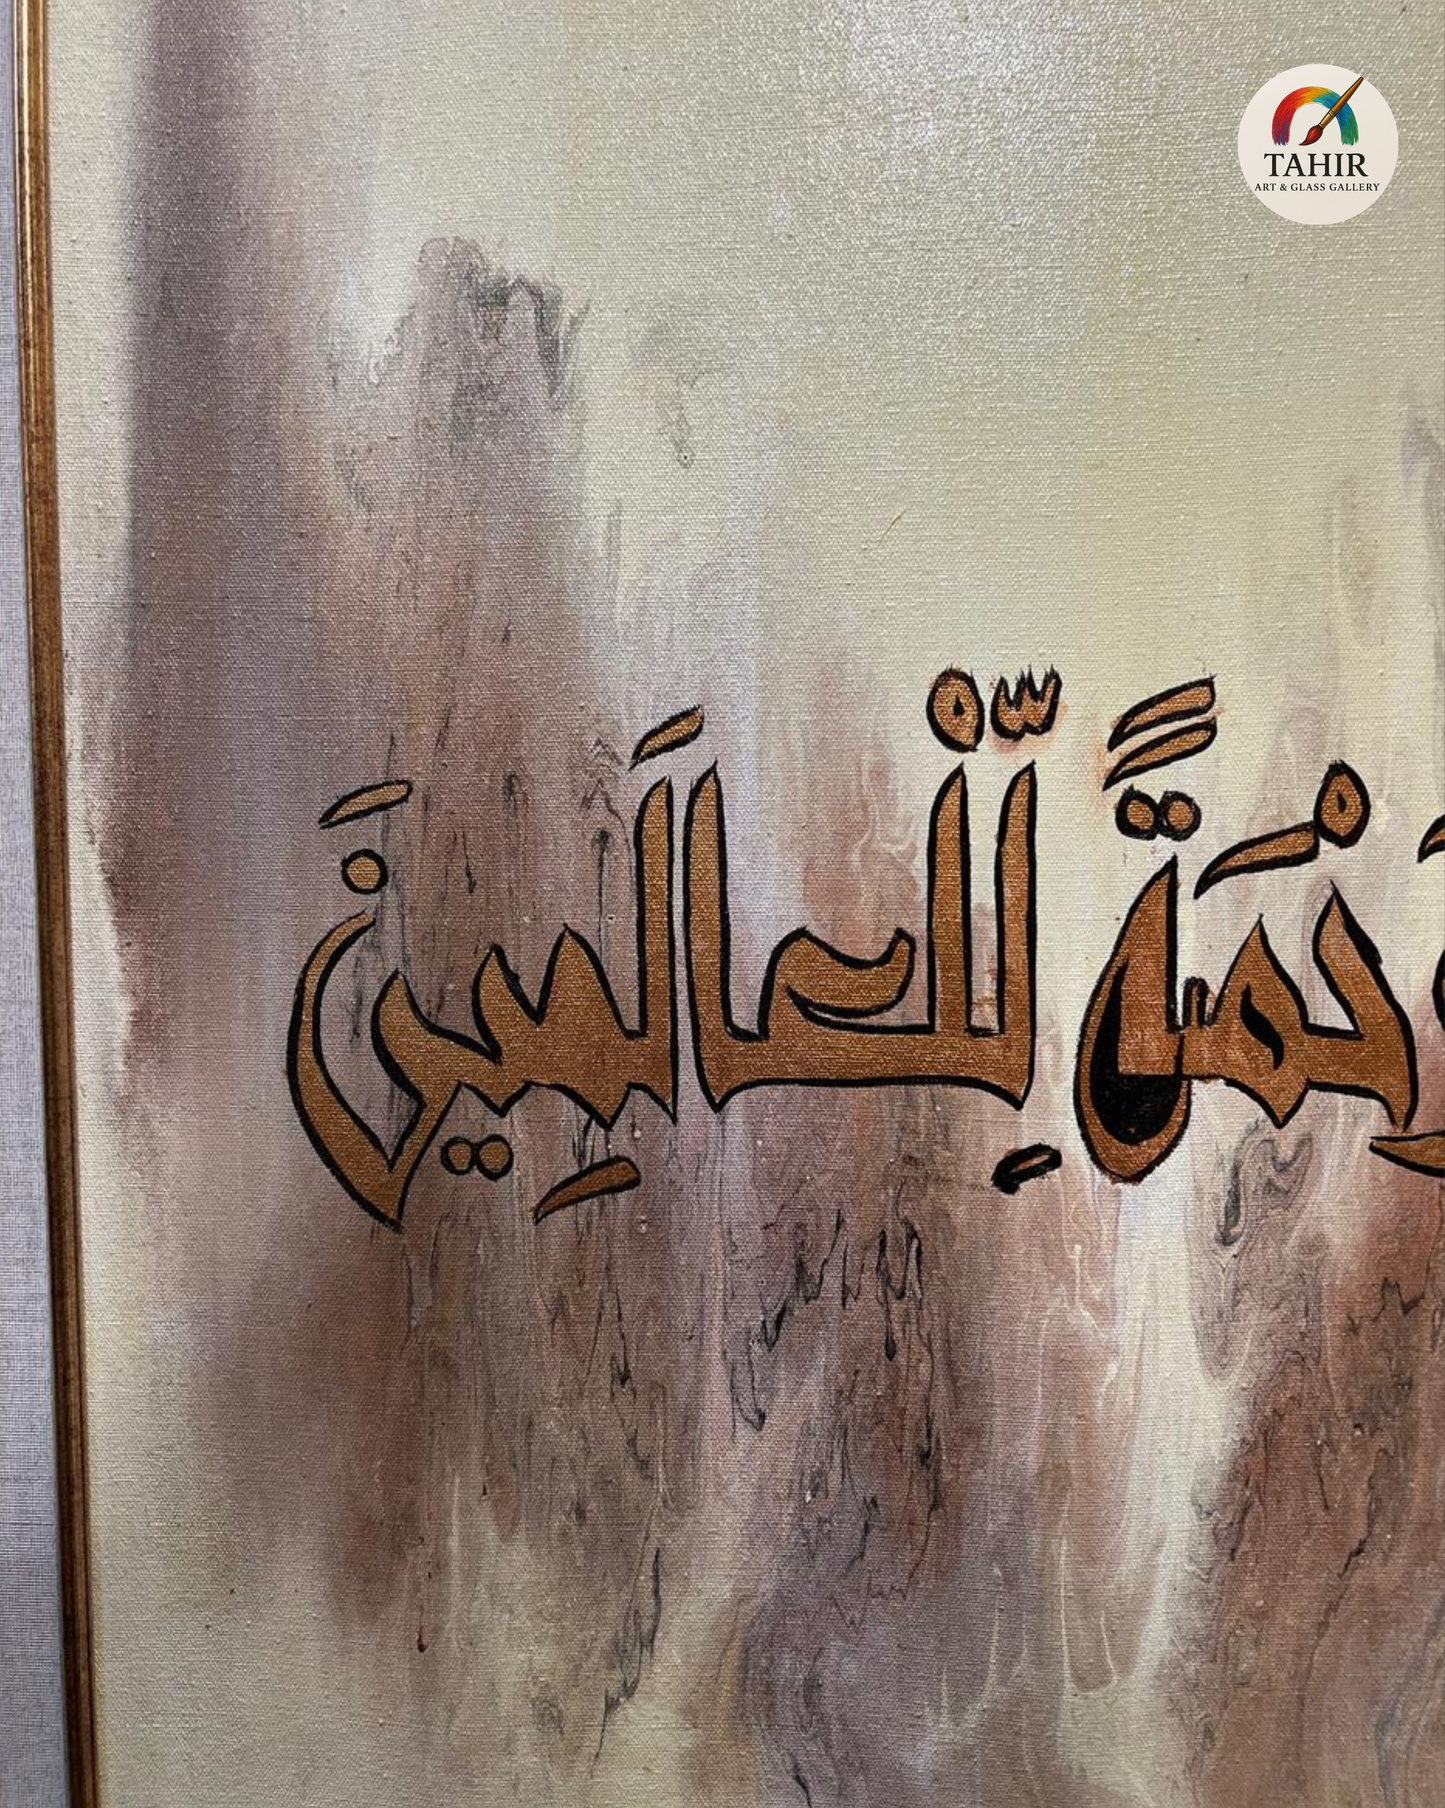 TAHIR
ART & GLASS GALLERY
رَحْمَةً لِّلْعَالَمِينَ